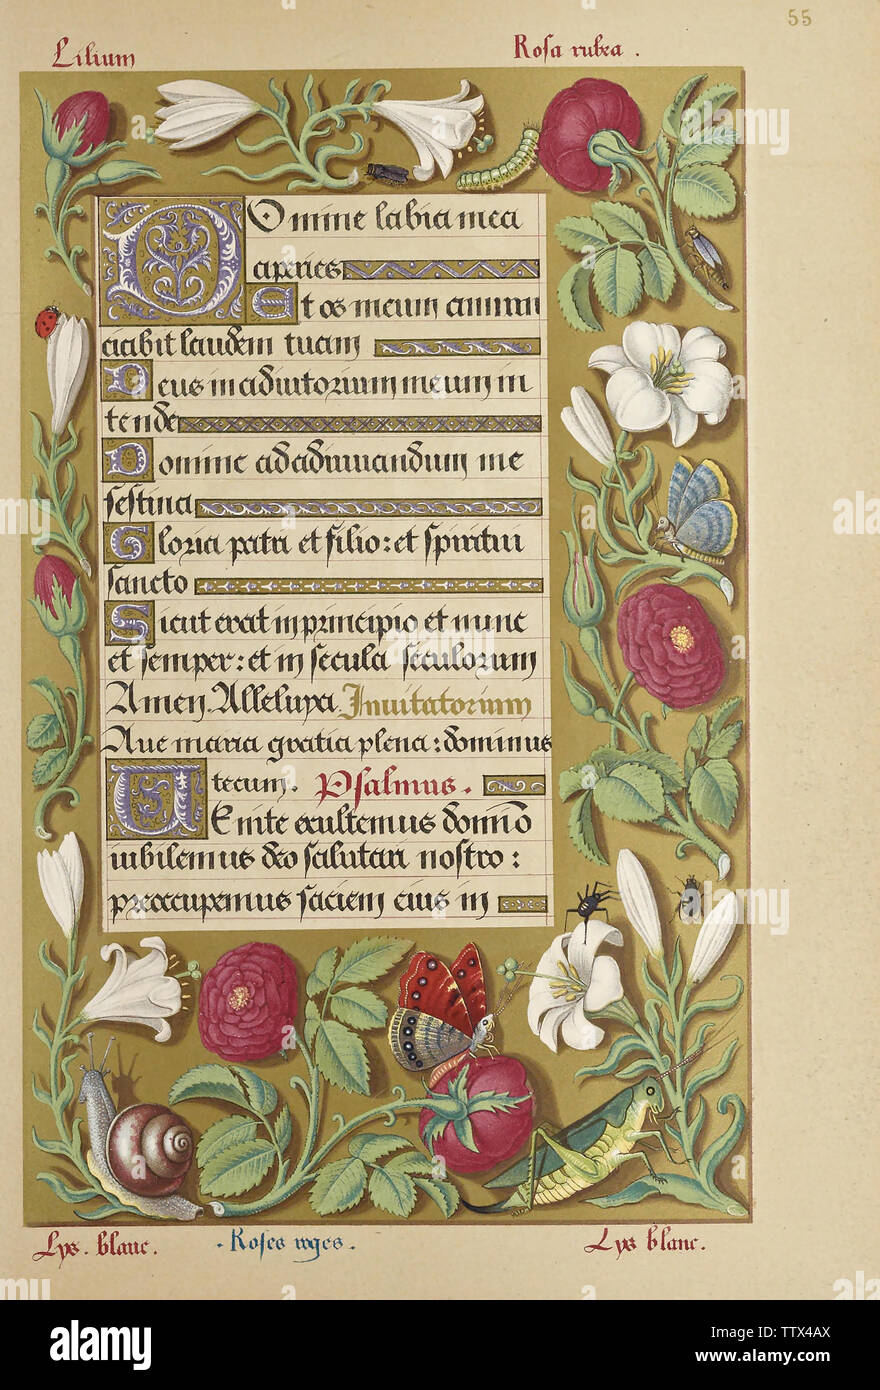 55
Lilium
Rosa rubea .
Domine labia mea
aperies
Et os meum annun
ciabit laudem tuam
Deus in adiutorium meum in
tende
Domine ad adiuuandum me
festina
Gloria patri et filio: et spiritui
sancto
Sicut erat in principio et nunc
et semper: et in secula seculorum
Amen. Alleluya. Inuitatorium
Aue maria gratia plena: dominus
tecum. Psalmus.
UEnite exultemus domĩo
iubilemus deo salutari nostro:
preoccupemus faciem eius in
Lys. blanc.
. Roses roges .
Lys blanc.
alamy
Image ID: TTX4AX
www.alamy.com